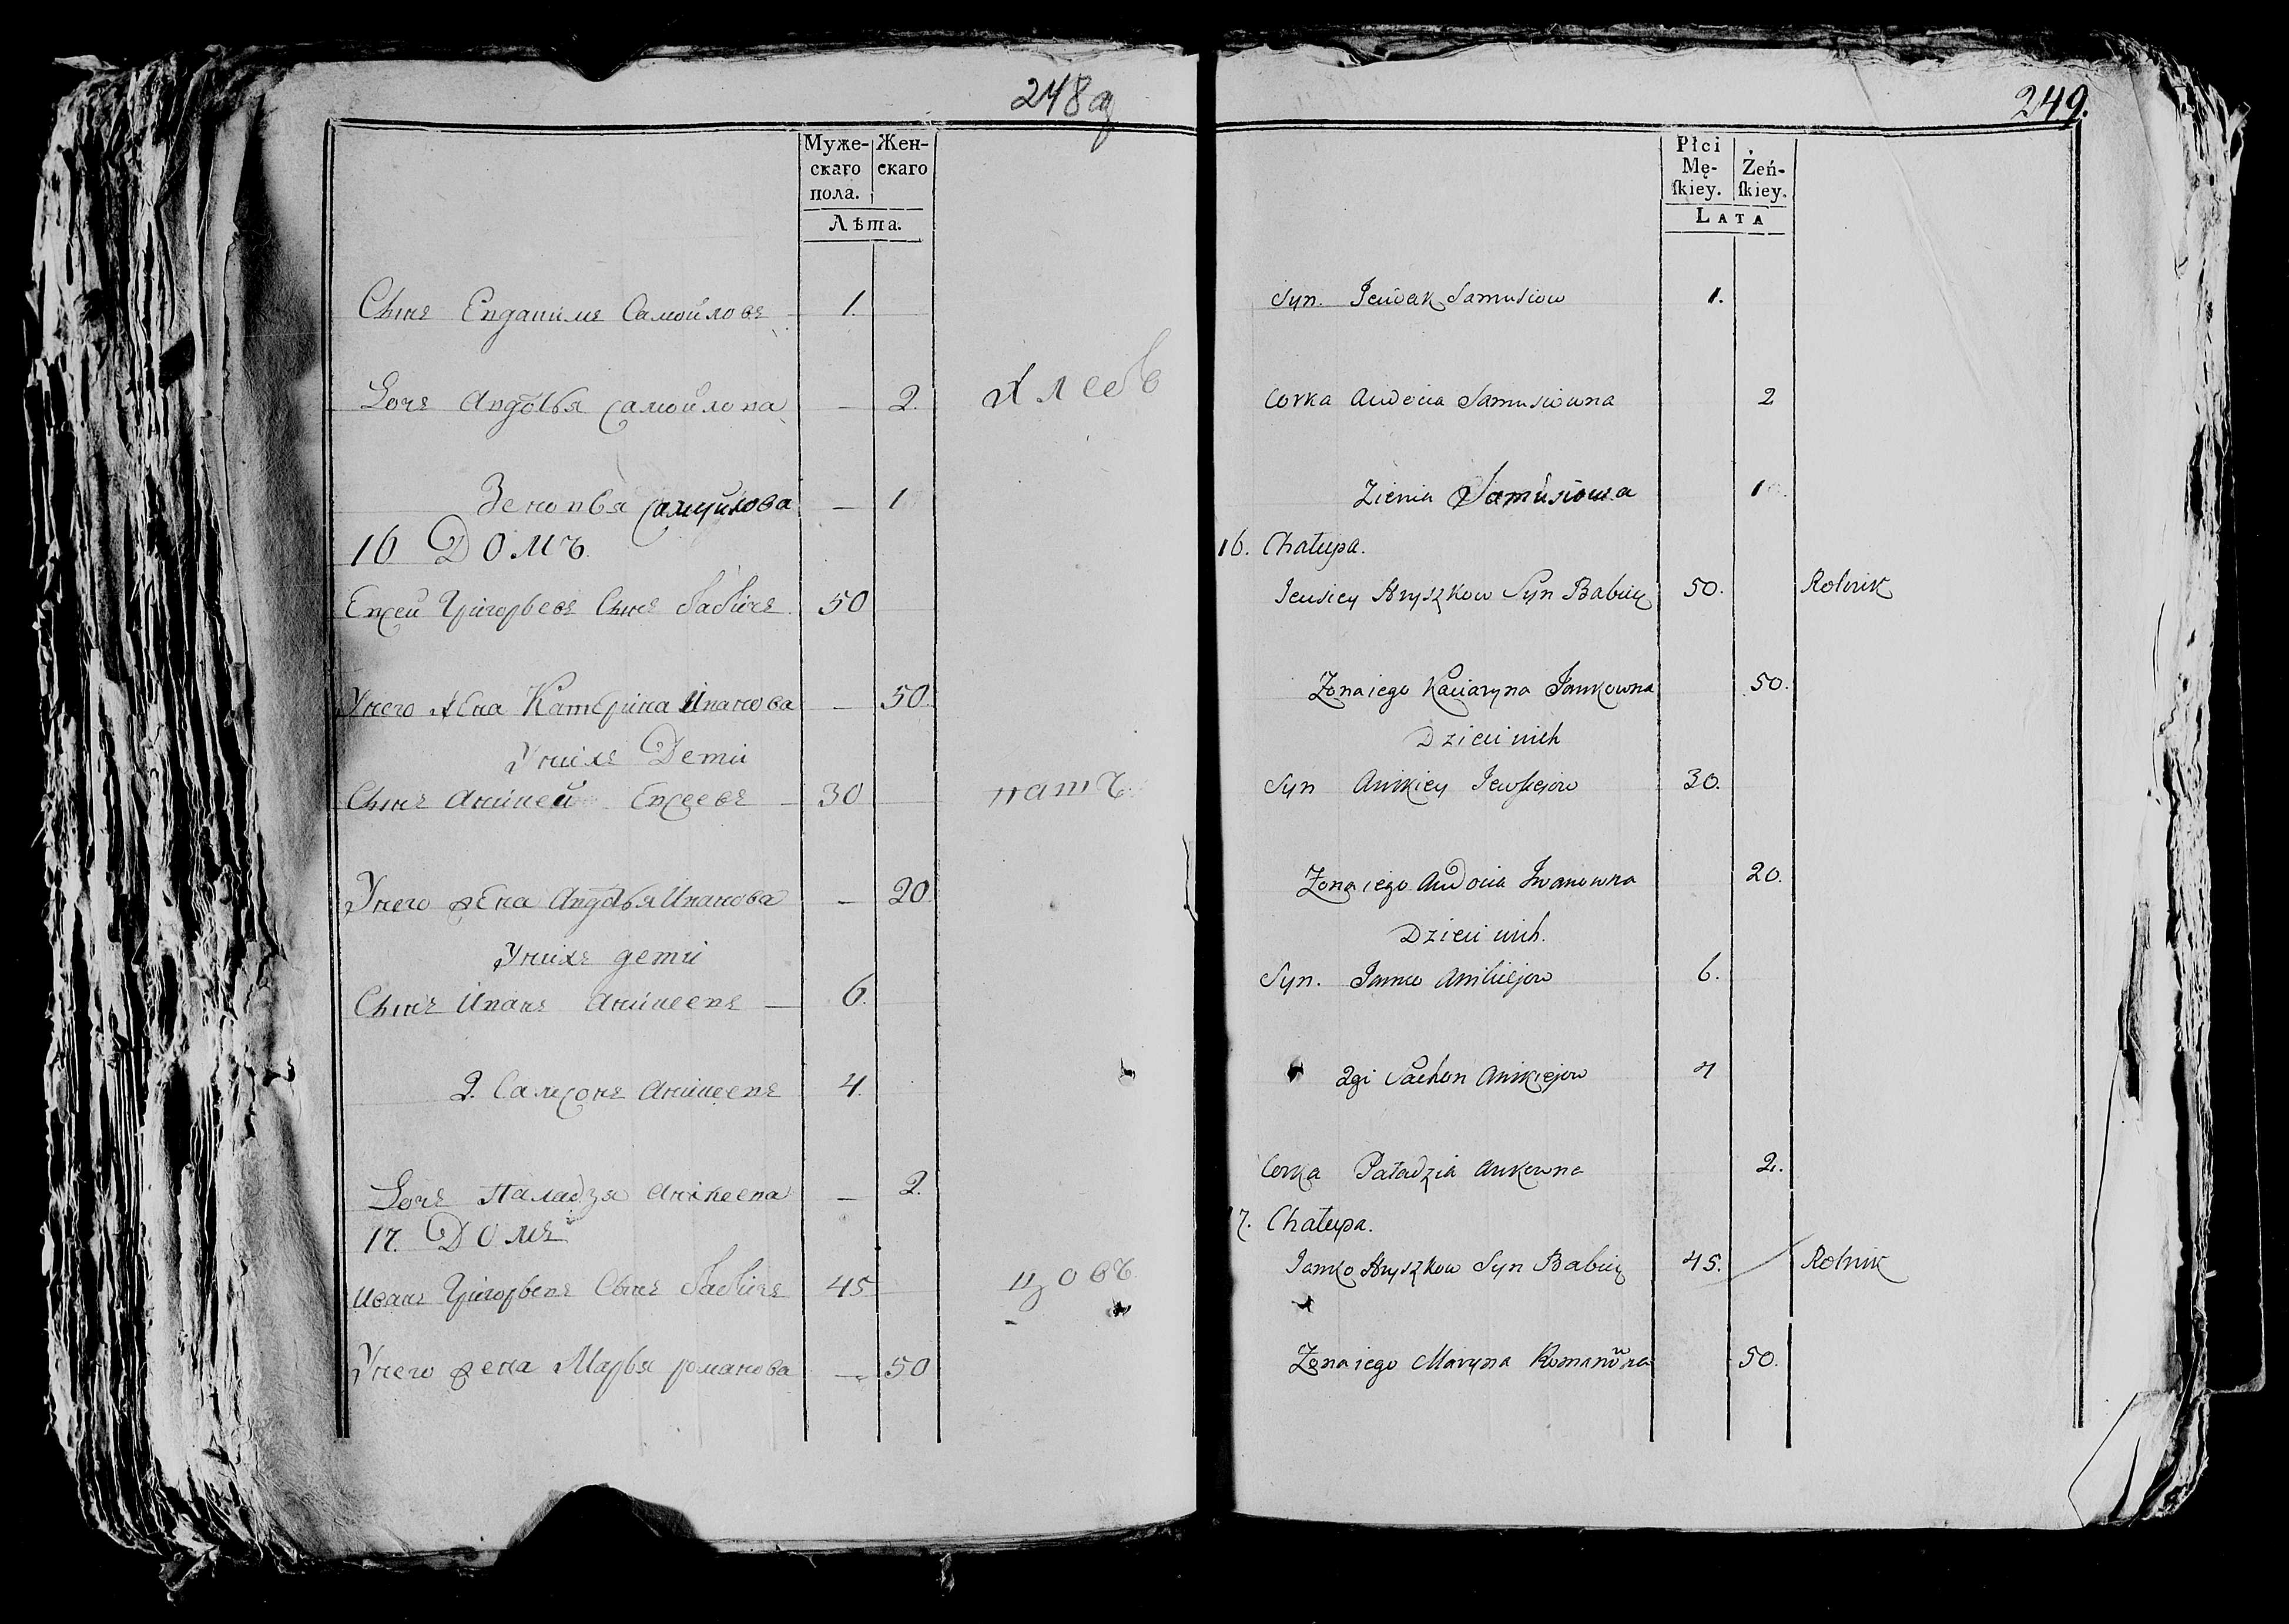 248 а
Муже-
скаго
пола.
Жен-
скаго
Лѣта.
Сынъ Евдакимъ Самойловъ 1.
Дочь Авдотья Самойлова — 2. хлебо
Зеновья Самуйлова — 1
16 Домъ.
Евсей Григорьевъ Сынъ Бабичъ 50
У него жена Катерина Иванова — 50.
У нихъ Дети
Сынъ Аникей Евсеевъ — 30 пашъ
У него жена Авдотья Иванова — 20.
У нихъ дети
Сынъ Иванъ Аникеевъ — 6.
2. Самсонъ Аникеевъ 4.
Дочь Паладзя Аникеева — 2.
17. Домъ
Иванъ Григорьевъ Сынъ Бабичъ 45
У него жена Марья романова — 50
249.
Płci
Mę-
ſkiey.
Żeń-
ſkiey.
LATA
Syn. Jewdak Samusiow 1.
Corka Audocia Samusiowna 2
Zienia Samusiowa 1
16. Chałupa.
Jewsiey Hryszkow Syn Babicz 50. Rolnik
Zona iego Kaciaryna Jankowna 50.
Dzieci nich
Syn Anikiey Jewsiejow 30.
Zona iego Audocia Iwanowna 20.
Dzieci nich.
Syn. Janko Anikiejow 6.
2gi Sachon Anikiejow 4
Corka Paładzia Ankowna 2.
17. Chałupa.
Janko Hryszkow Syn Babicz 45. Rolnik
Zona iego Maryna Romanowna 50.